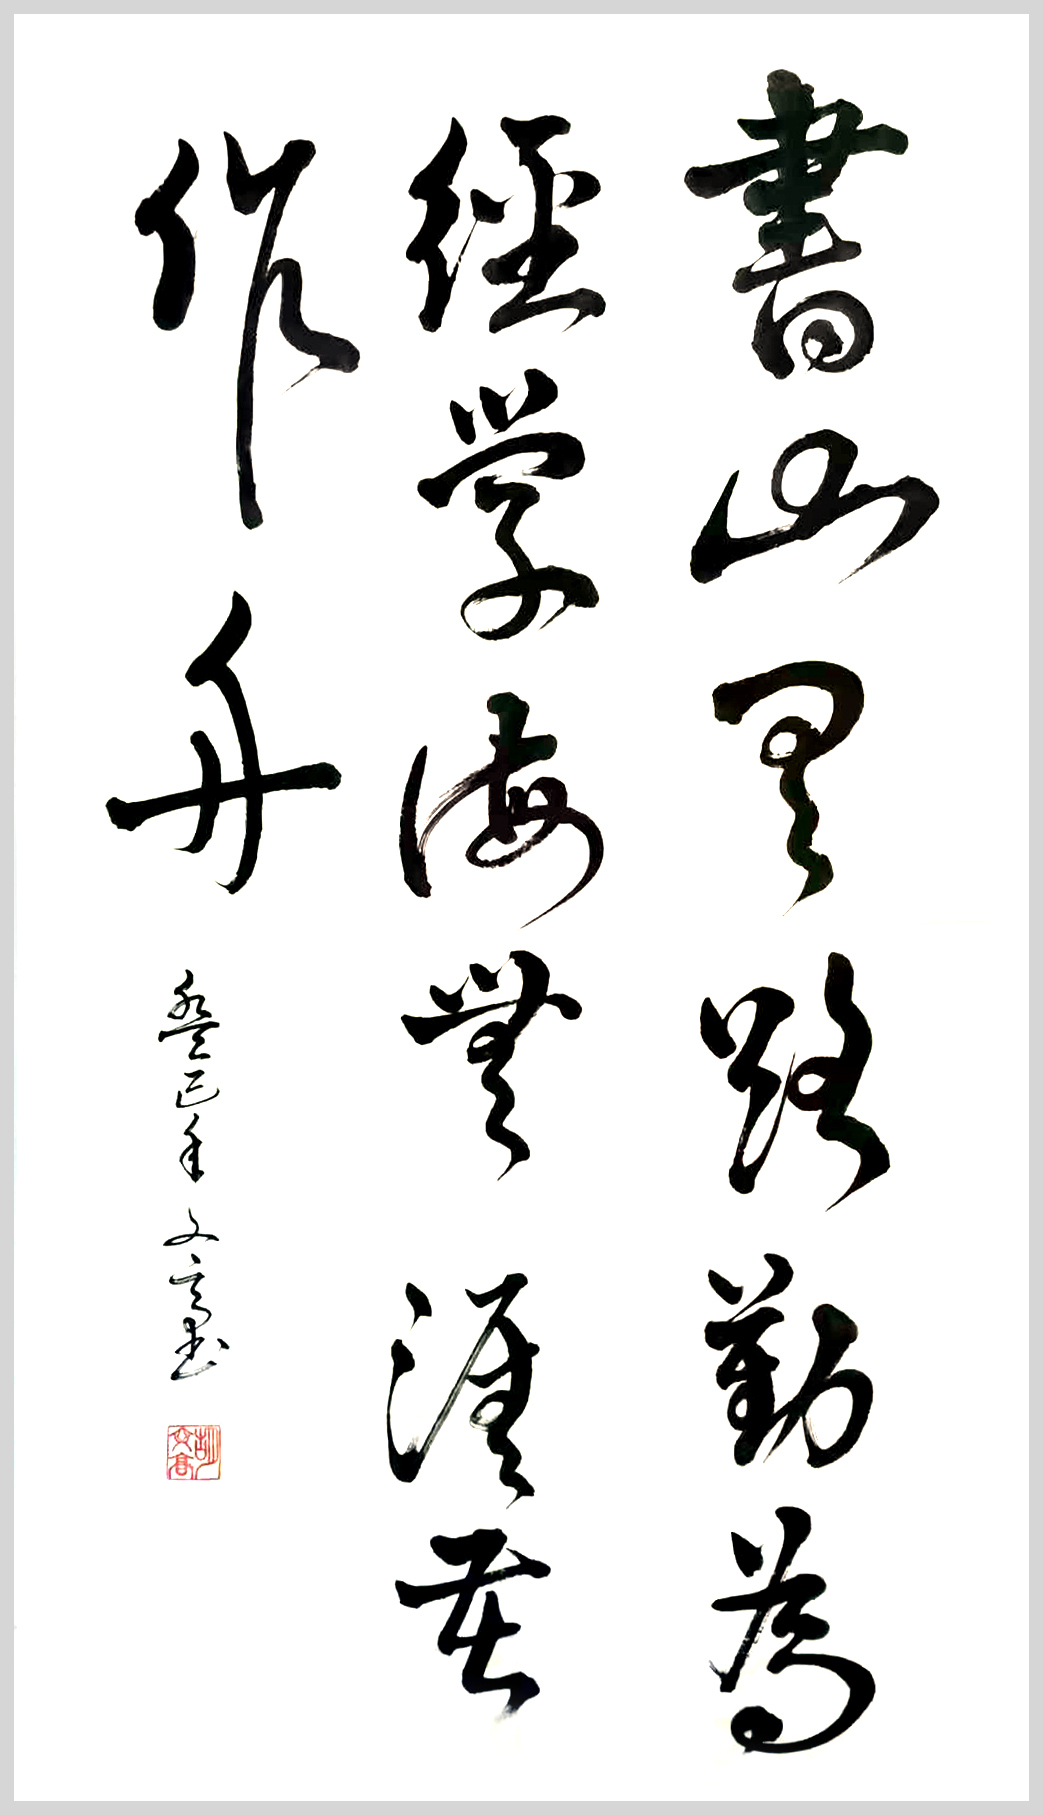 書山有路勤為
徑学海無涯苦
作舟
癸巳年 文高书
胡文高